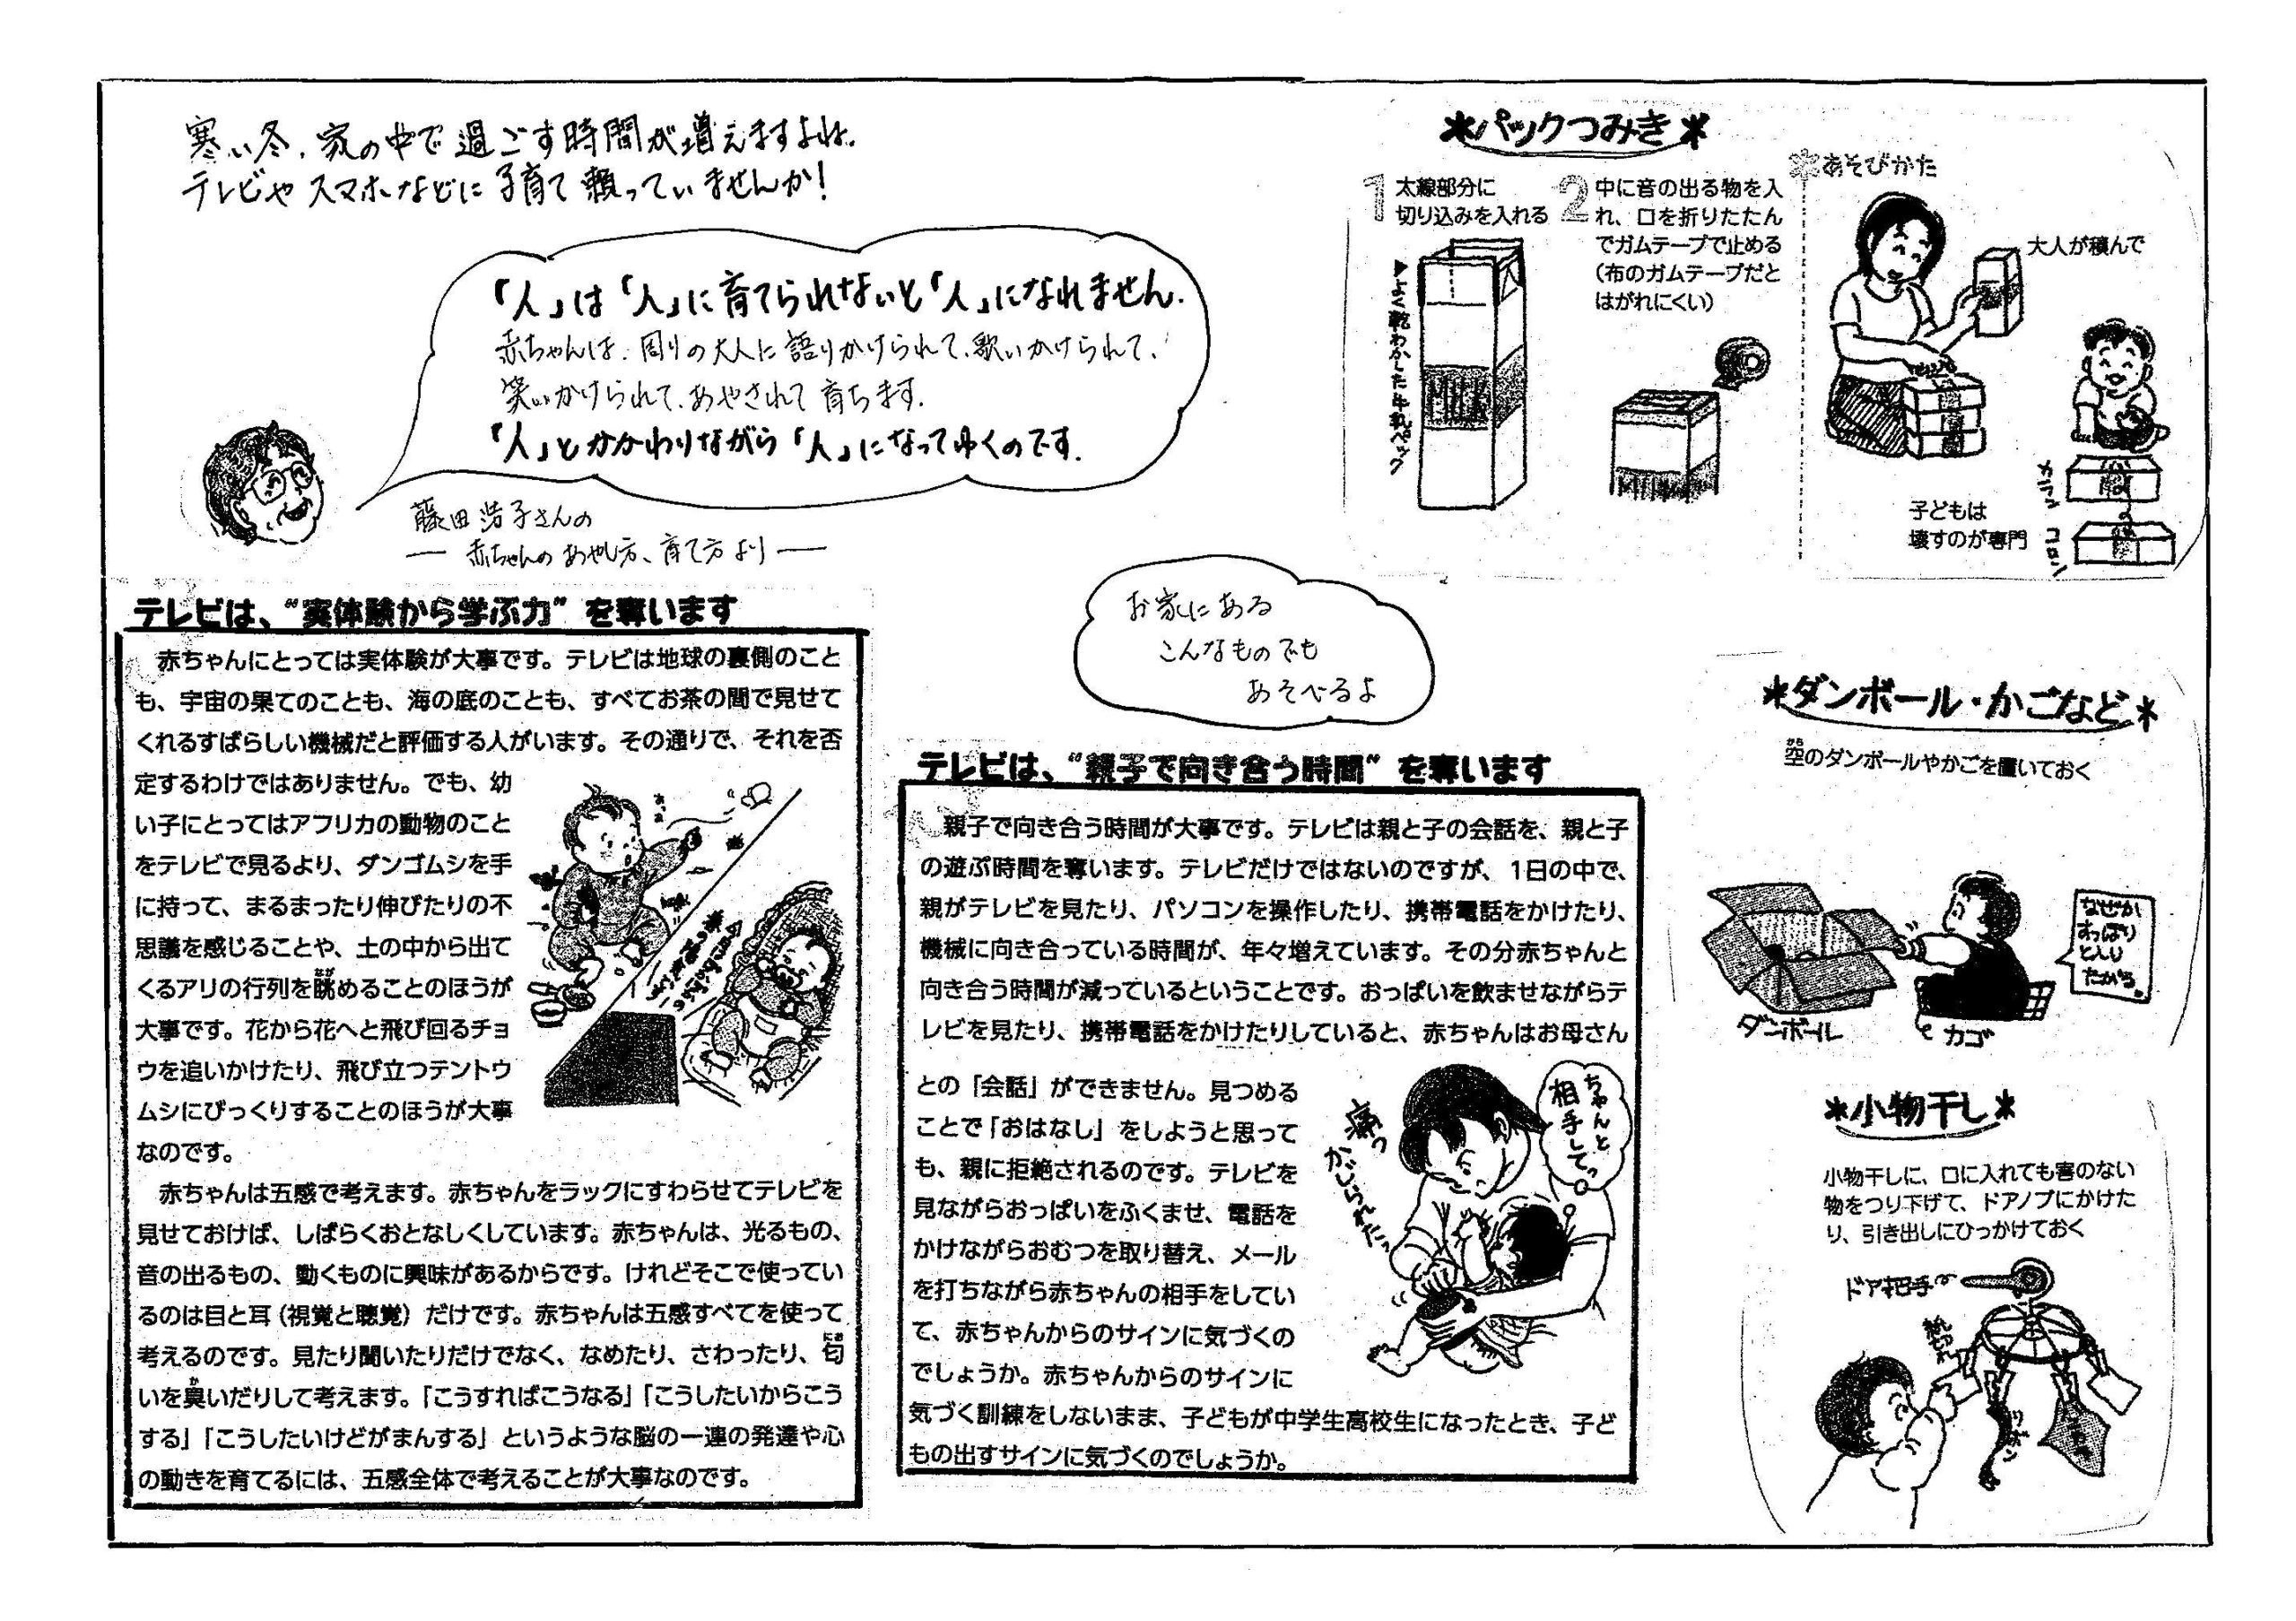 寒い冬、家の中で過ごす時間が増えますよね。
テレビやスマホなどに子育て頼っていませんか!
「人」は「人」に育てられないと「人」になれません.
赤ちゃんは、周りの大人に語りかけられて、歌いかけられて、
笑いかけられて、あやされて育ちます.
「人」とかかわりながら「人」になってゆくのです.
藤田浩子さんの
― 赤ちゃんのあやし方、育て方より ―
テレビは、“実体験から学ぶ力”を奪います
赤ちゃんにとっては実体験が大事です。テレビは地球の裏側のこと
も、宇宙の果てのことも、海の底のことも、すべてお茶の間で見せて
くれるすばらしい機械だと評価する人がいます。その通りで、それを否
定するわけではありません。でも、幼
い子にとってはアフリカの動物のこと
をテレビで見るより、ダンゴムシを手
に持って、まるまったり伸びたりの不
思議を感じることや、土の中から出て
くるアリの行列を眺めることのほうが
大事です。花から花へと飛び回るチョ
ウを追いかけたり、飛び立つテントウ
ムシにびっくりすることのほうが大事
なのです。
赤ちゃんは五感で考えます。赤ちゃんをラックにすわらせてテレビを
見せておけば、しばらくおとなしくしています。赤ちゃんは、光るもの、
音の出るもの、動くものに興味があるからです。けれどそこで使ってい
るのは目と耳(視覚と聴覚)だけです。赤ちゃんは五感すべてを使って
考えるのです。見たり聞いたりだけでなく、なめたり、さわったり、匂
いを臭いだりして考えます。「こうすればこうなる」「こうしたいからこう
する」「こうしたいけどがまんする」というような脳の一連の発達や心
の動きを育てるには、五感全体で考えることが大事なのです。
お家にある
こんなものでも
あそべるよ
テレビは、“親子で向き合う時間”を奪います
親子で向き合う時間が大事です。テレビは親と子の会話を、親と子
の遊ぶ時間を奪います。テレビだけではないのですが、1日の中で、
親がテレビを見たり、パソコンを操作したり、携帯電話をかけたり、
機械に向き合っている時間が、年々増えています。その分赤ちゃんと
向き合う時間が減っているということです。おっぱいを飲ませながらテ
レビを見たり、携帯電話をかけたりしていると、赤ちゃんはお母さん
との「会話」ができません。見つめる
ことで「おはなし」をしようと思って
も、親に拒絶されるのです。テレビを
見ながらおっぱいをふくませ、電話を
かけながらおむつを取り替え、メール
を打ちながら赤ちゃんの相手をしてい
て、赤ちゃんからのサインに気づくの
でしょうか。赤ちゃんからのサインに
気づく訓練をしないまま、子どもが中学生高校生になったとき、子ど
もの出すサインに気づくのでしょうか。
ちゃんと
相手してっ
痛っ
かじられたっ
*パックつみき*
1 太線部分に
切り込みを入れる
▶よく乾わかした牛乳パック
2 中に音の出る物を入
れ、口を折りたたん
でガムテープで止める
(布のガムテープだと
はがれにくい)
*あそびかた
大人が積んで
子どもは
壊すのが専門
コロン
*ダンボール・かごなど*
空のダンボールやかごを置いておく
から
ダンボール
カゴ
なぜか
すっぽり
と入り
たがる。
*小物干し*
小物干しに、口に入れても害のない
物をつり下げて、ドアノブにかけた
り、引き出しにひっかけておく
ドア把手
リボン